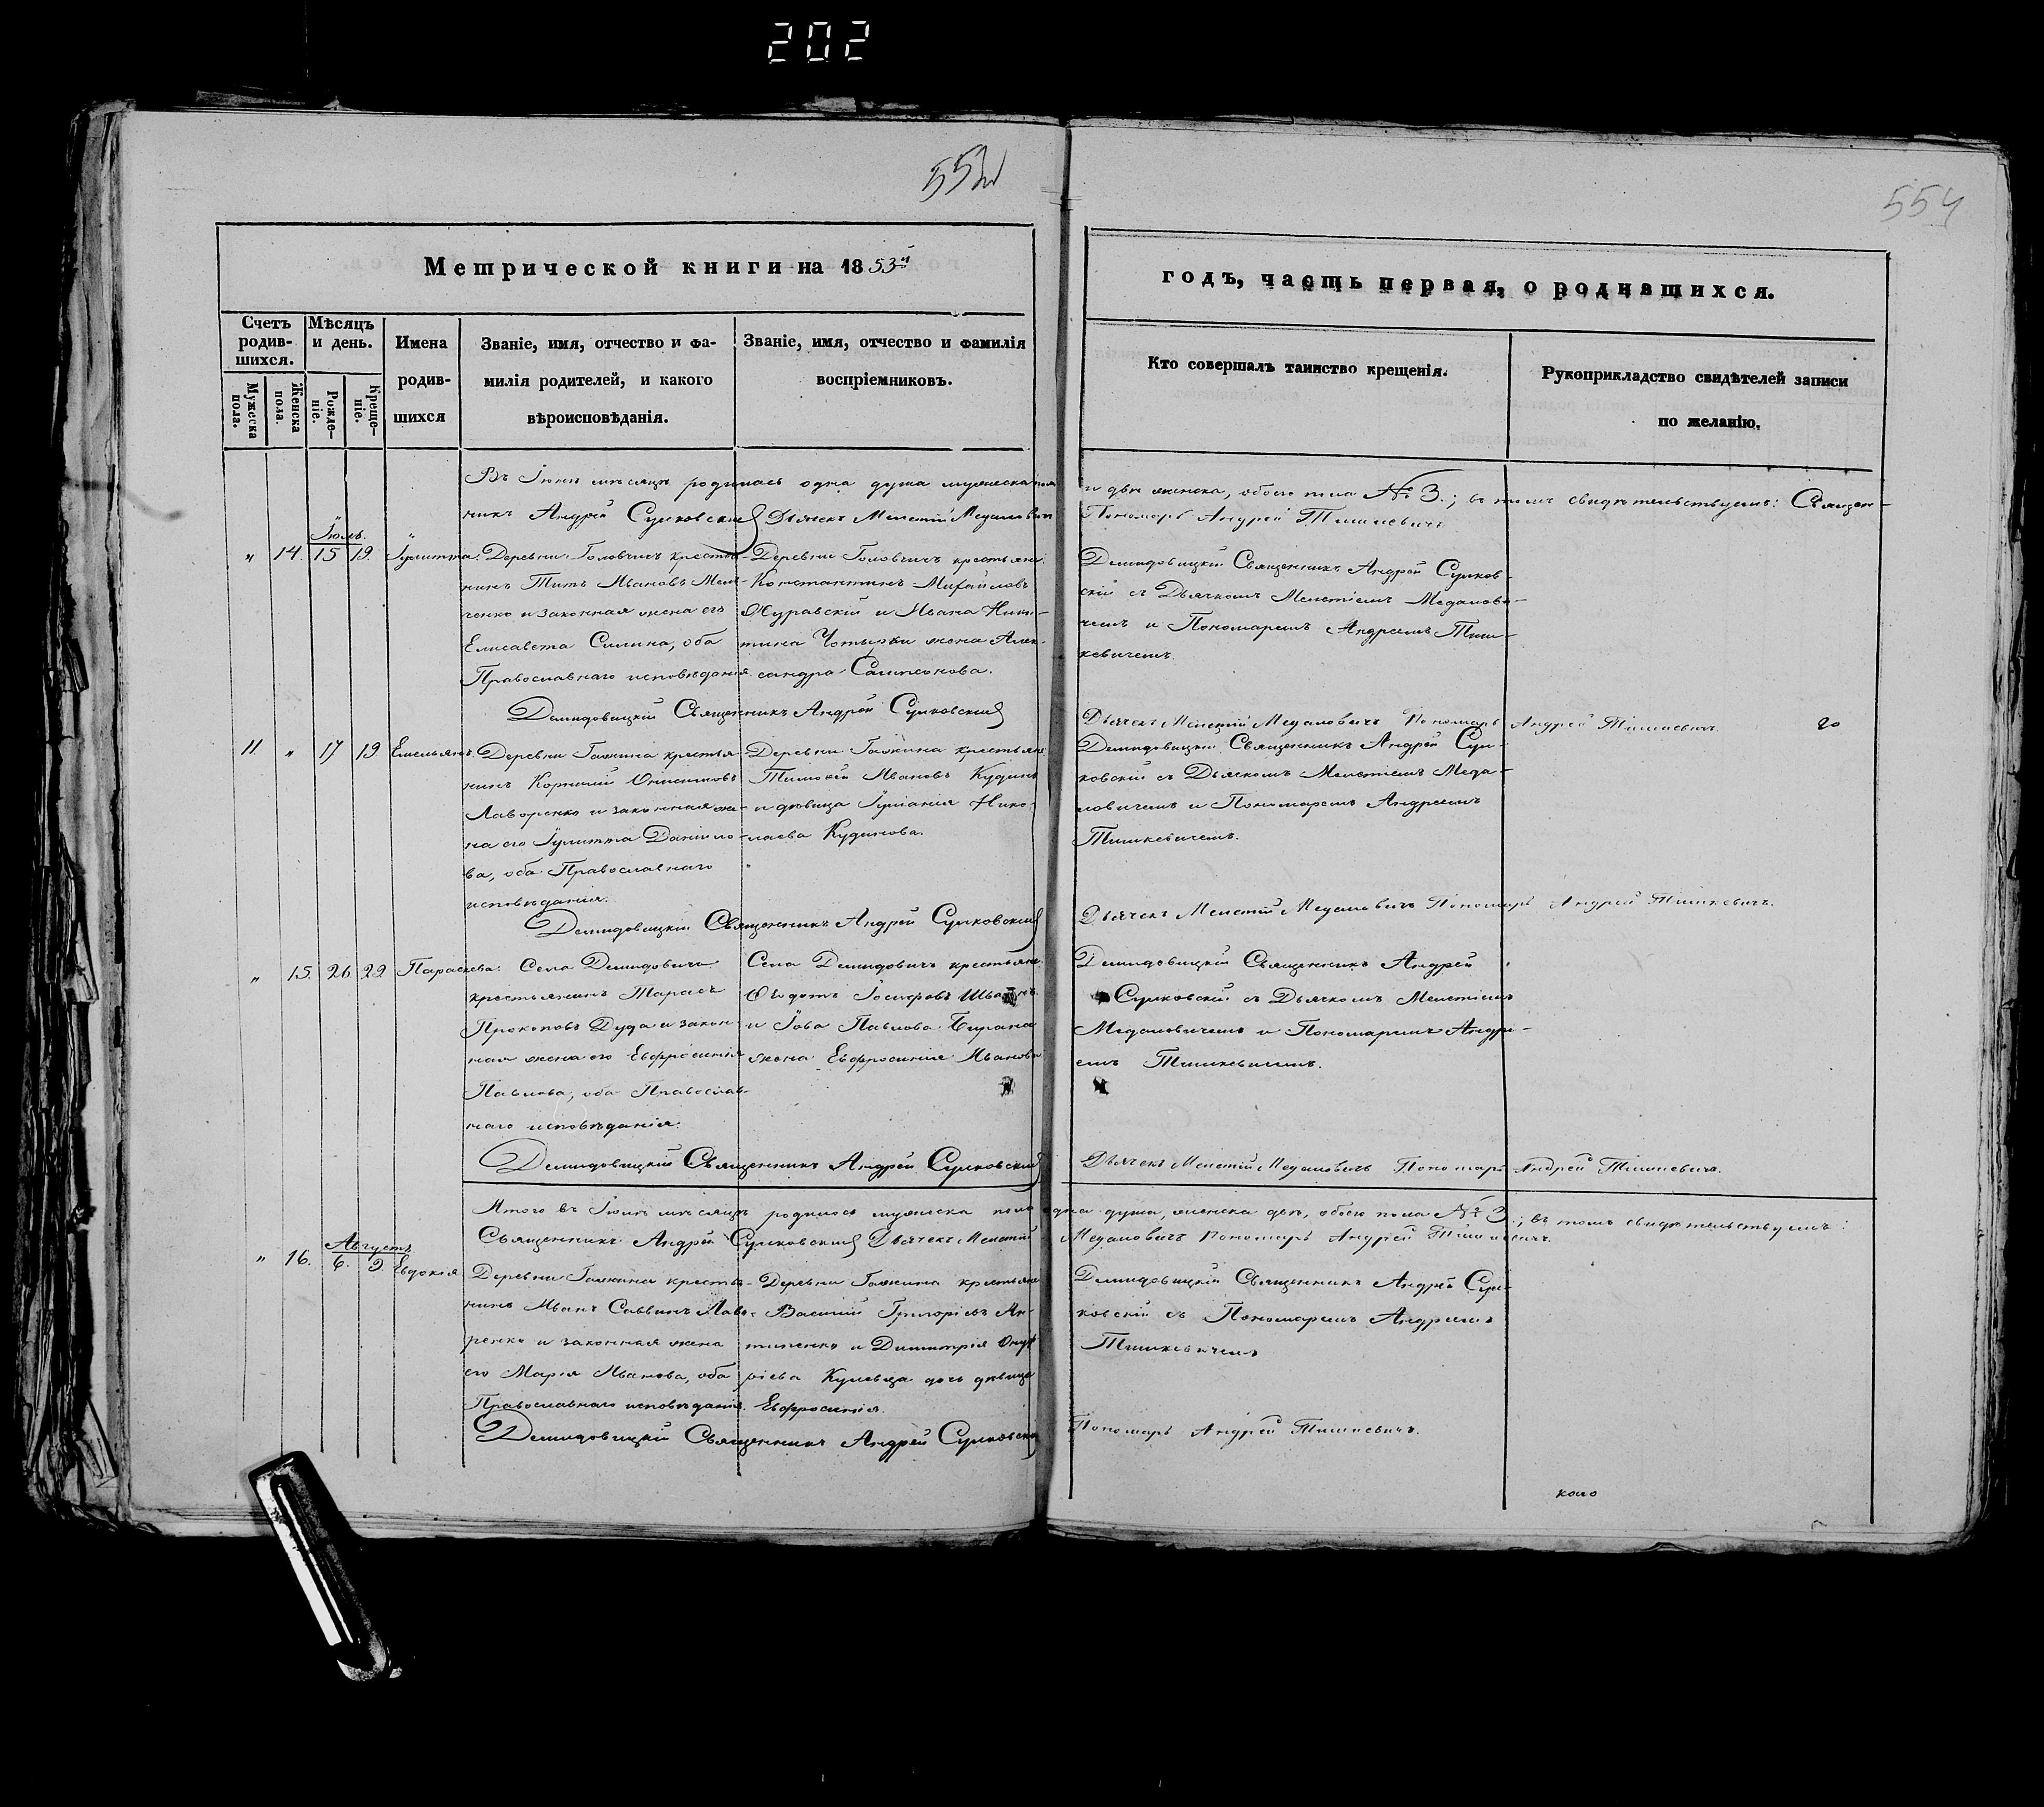 202
554
Метрической книги на 1853й
годъ, часть первая, о родившихся.
Счетъ родив-шихся.
Мѣсяцъ и день.
Имена родив-шихся
Званіе, имя, отчество и фа-милія родителей, и какого вѣроисповѣданія.
Званіе, имя, отчество и фамилія воспріемниковъ.
Кто совершалъ таинство крещенія.
Рукоприкладство свидѣтелей записи по желанію.
Мужеска пола.
Женска пола.
Рожде-ніе.
Креще-ніе.
Въ Іюнѣ мѣсяцѣ родилась одна душа мужеска пола
и двѣ женска, обоего пола № 3.; въ томъ свидѣтельствуемъ: Священ-
никъ Андрей Сулковскій Дьячекъ Мелетій Медаловичъ
Пономарь Андрей Тишкевичъ
Іюль.
" 14. 15 19. Іулитта.
Деревни Головчичъ крестья-
нинъ Титъ Ивановъ
ченко и законная жена его
Елисавета Силина, оба
Православнаго исповѣданія.
Деревни Головчичъ крестьян.
Константинъ Михайловъ
Журавскій и Ивана Ники-
тина жена Алек-
сандра Сампсонова.
Демидовицкій Священникъ Андрей Сулков-
скій съ Дьячкомъ Мелетіемъ Медалови-
чемъ и Пономаремъ Андреемъ Тиш-
кевичемъ.
Демидовицкій Священникъ Андрей Сулковскій
Дьячекъ Мелетій Медаловичъ Пономарь Андрей Тишкевичъ.
11 " 17 19 Емельянъ.
Деревни Галкина крестья-
нинъ Корнилій
Лавренко и законная же-
на его Іулитта Данило-
ва, оба Православнаго
исповѣданія.
Деревни Галкина крестьян.
Тимофей Ивановъ Кудинъ
и дѣвица Іуліанія Нико-
лаева Кудинова.
Демидовицкій Священникъ Андрей Сул-
ковскій съ Дьячкомъ Мелетіемъ Меда-
ловичемъ и Пономаремъ Андреемъ
Тишкевичемъ.
Демидовицкій Священникъ Андрей Сулковскій
Дьячекъ Мелетій Медаловичъ Пономарь Андрей Тишкевичъ.
" 15. 26 29 Параскева.
Села Демидовичъ
крестьянинъ Тарасъ
Прокоповъ Дуда и закон-
ная жена его Евфросинія
Павлова, оба Православ-
наго исповѣданія.
Села Демидовичъ крестьян.
Ѳеодотъ Іосифовъ
и Іова Павлова
жена Евфросинія Иванова
Демидовицкій Священникъ Андрей
Сулковскій съ Дьячкомъ Мелетіемъ
Медаловичемъ и Пономаремъ Андре-
емъ Тишкевичемъ.
Демидовицкій Священникъ Андрей Сулковскій
Дьячекъ Мелетій Медаловичъ Пономарь Андрей Тишкевичъ.
Итого въ Іюлѣ мѣсяцѣ родилось мужеска пола одна душа, женска двѣ, обоего пола № 3.; въ томъ свидѣтельствуемъ:
Священникъ Андрей Сулковскій Дьячекъ Мелетій Медаловичъ Пономарь Андрей Тишкевичъ.
Августъ
" 16. 6. 9. Евдокія
Деревни Галкина крестья-
нинъ Иванъ Саввинъ Лав-
ренко и законная жена
его Марія Иванова, оба
Православнаго исповѣданія.
Деревни Галкина крестьян.
Василій Григоріевъ Ан-
типенко и Димитрія Онуф-
ріева дочь дѣвица
Евфросинія.
Демидовицкій Священникъ Андрей Сул-
ковскій съ Пономаремъ Андреемъ
Тишкевичемъ
Демидовицкій Священникъ Андрей Сулковскій
Пономарь Андрей Тишкевичъ.